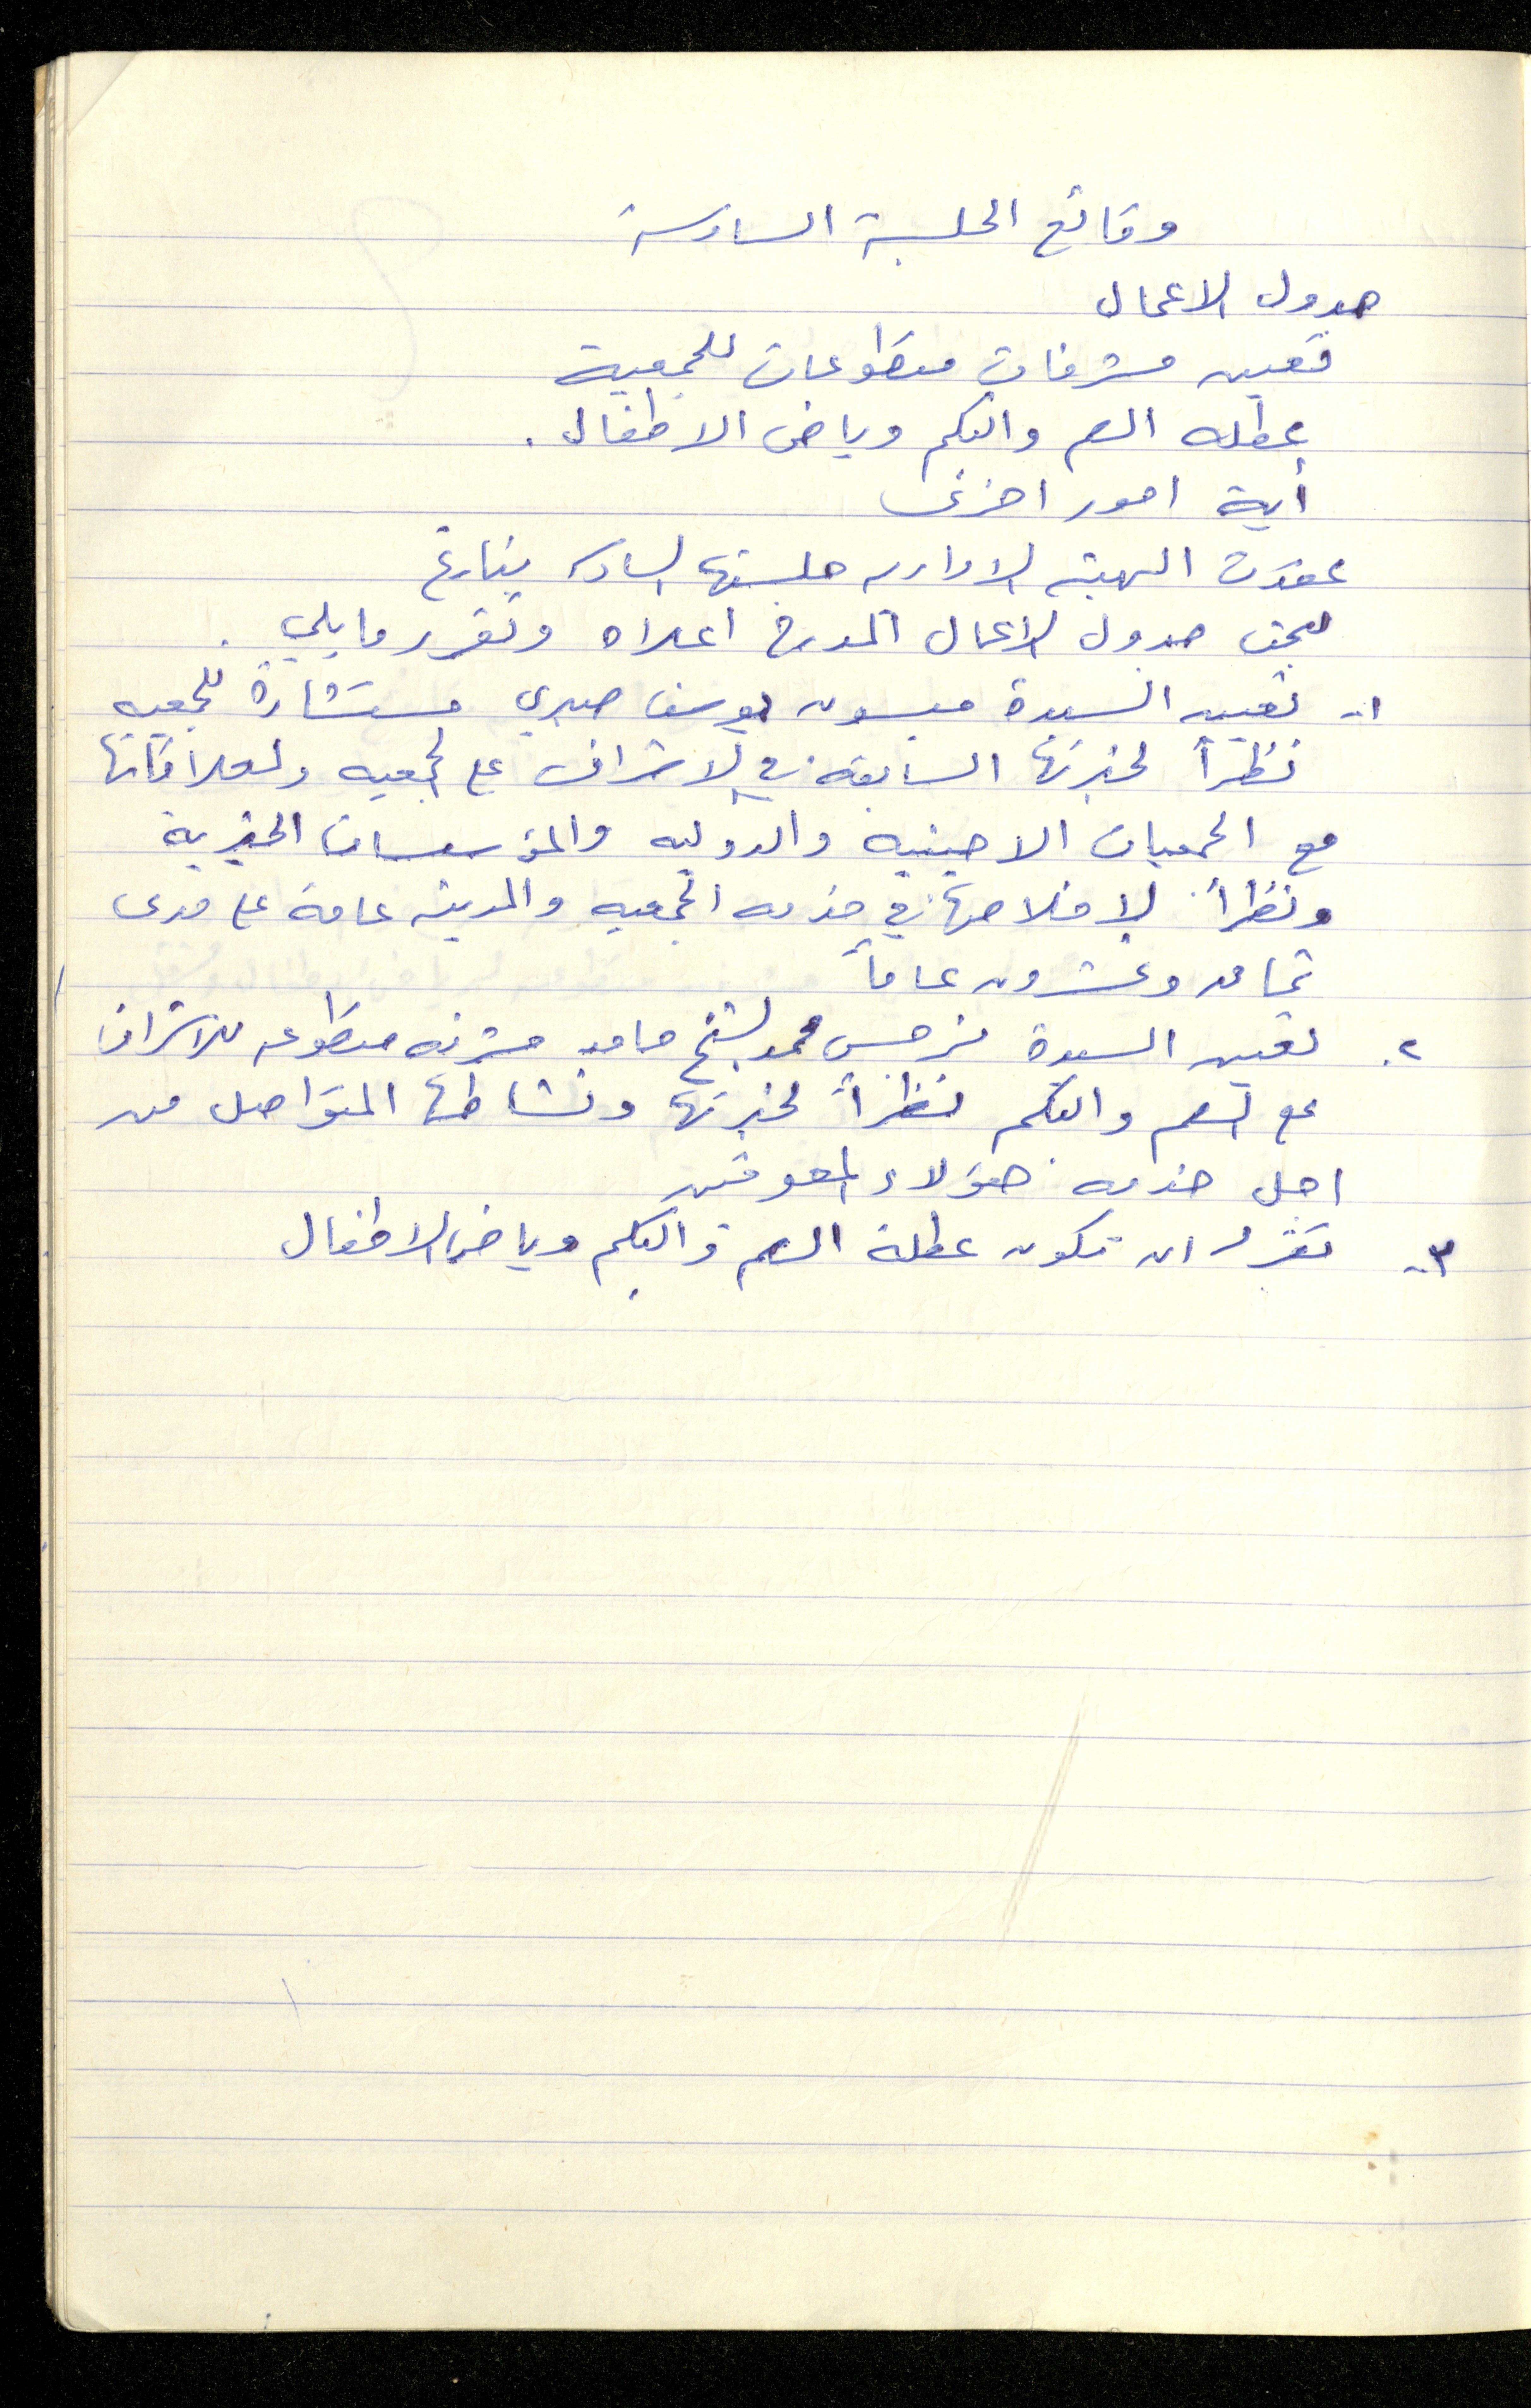 وقائع الجلسة السادسة
جدول الاعمال
تعيين مشرفات متطوعات للجمعية
عطله الصم والبكم ورياض الاطفال .
أية امور اخرى
عقدت الهيئه الاداريه جلستها السادسه بتاريخ
لبحث جدول الاعمال المدرج اعلاه وتقرر مايلي .
١- تعيين السيدة ميسون يوسف صبري مستشارة للجمعيه
نظراً لخبرتها السابقه في الاشراف على الجمعيه ولعلاقاتها
مع الجمعيات الاجنبيه والدوليه والمؤسسات الخيرية
ونظراً لإخلاصها في خدمه الجمعيه والمدينه عامة على مدى
ثمانيه وعشرون عاماً
٢. تعيين السيدة نرجس محمد الشيخ حامد مشرفه متطوعه للاشراف
على الصم والبكم نظراً لخبرتها ونشاطها المتواصل من
اجل خدمه هؤلاء المعوقين
٣- تقرر ان تكون عطلة الصم والبكم ورياض الاطفال